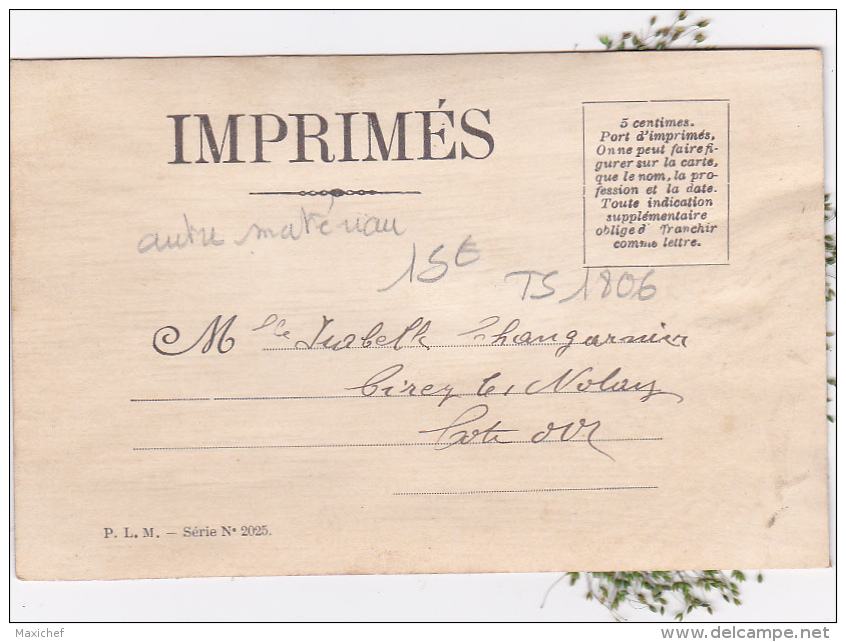 IMPRIMÉS
5 centimes.
Port d'imprimés,
On ne peut faire fi-
gurer sur la carte,
que le nom, la pro-
fession et la date.
Toute indication
supplémentaire
oblige d' franchir
comme lettre.
autre matériau
15€
TS 1806
Mlle Isabelle Changarnier
Cirey les Nolay
Cote d'Or
P. L. M. — Série N° 2025.
Maxichef
www.delcampe.net